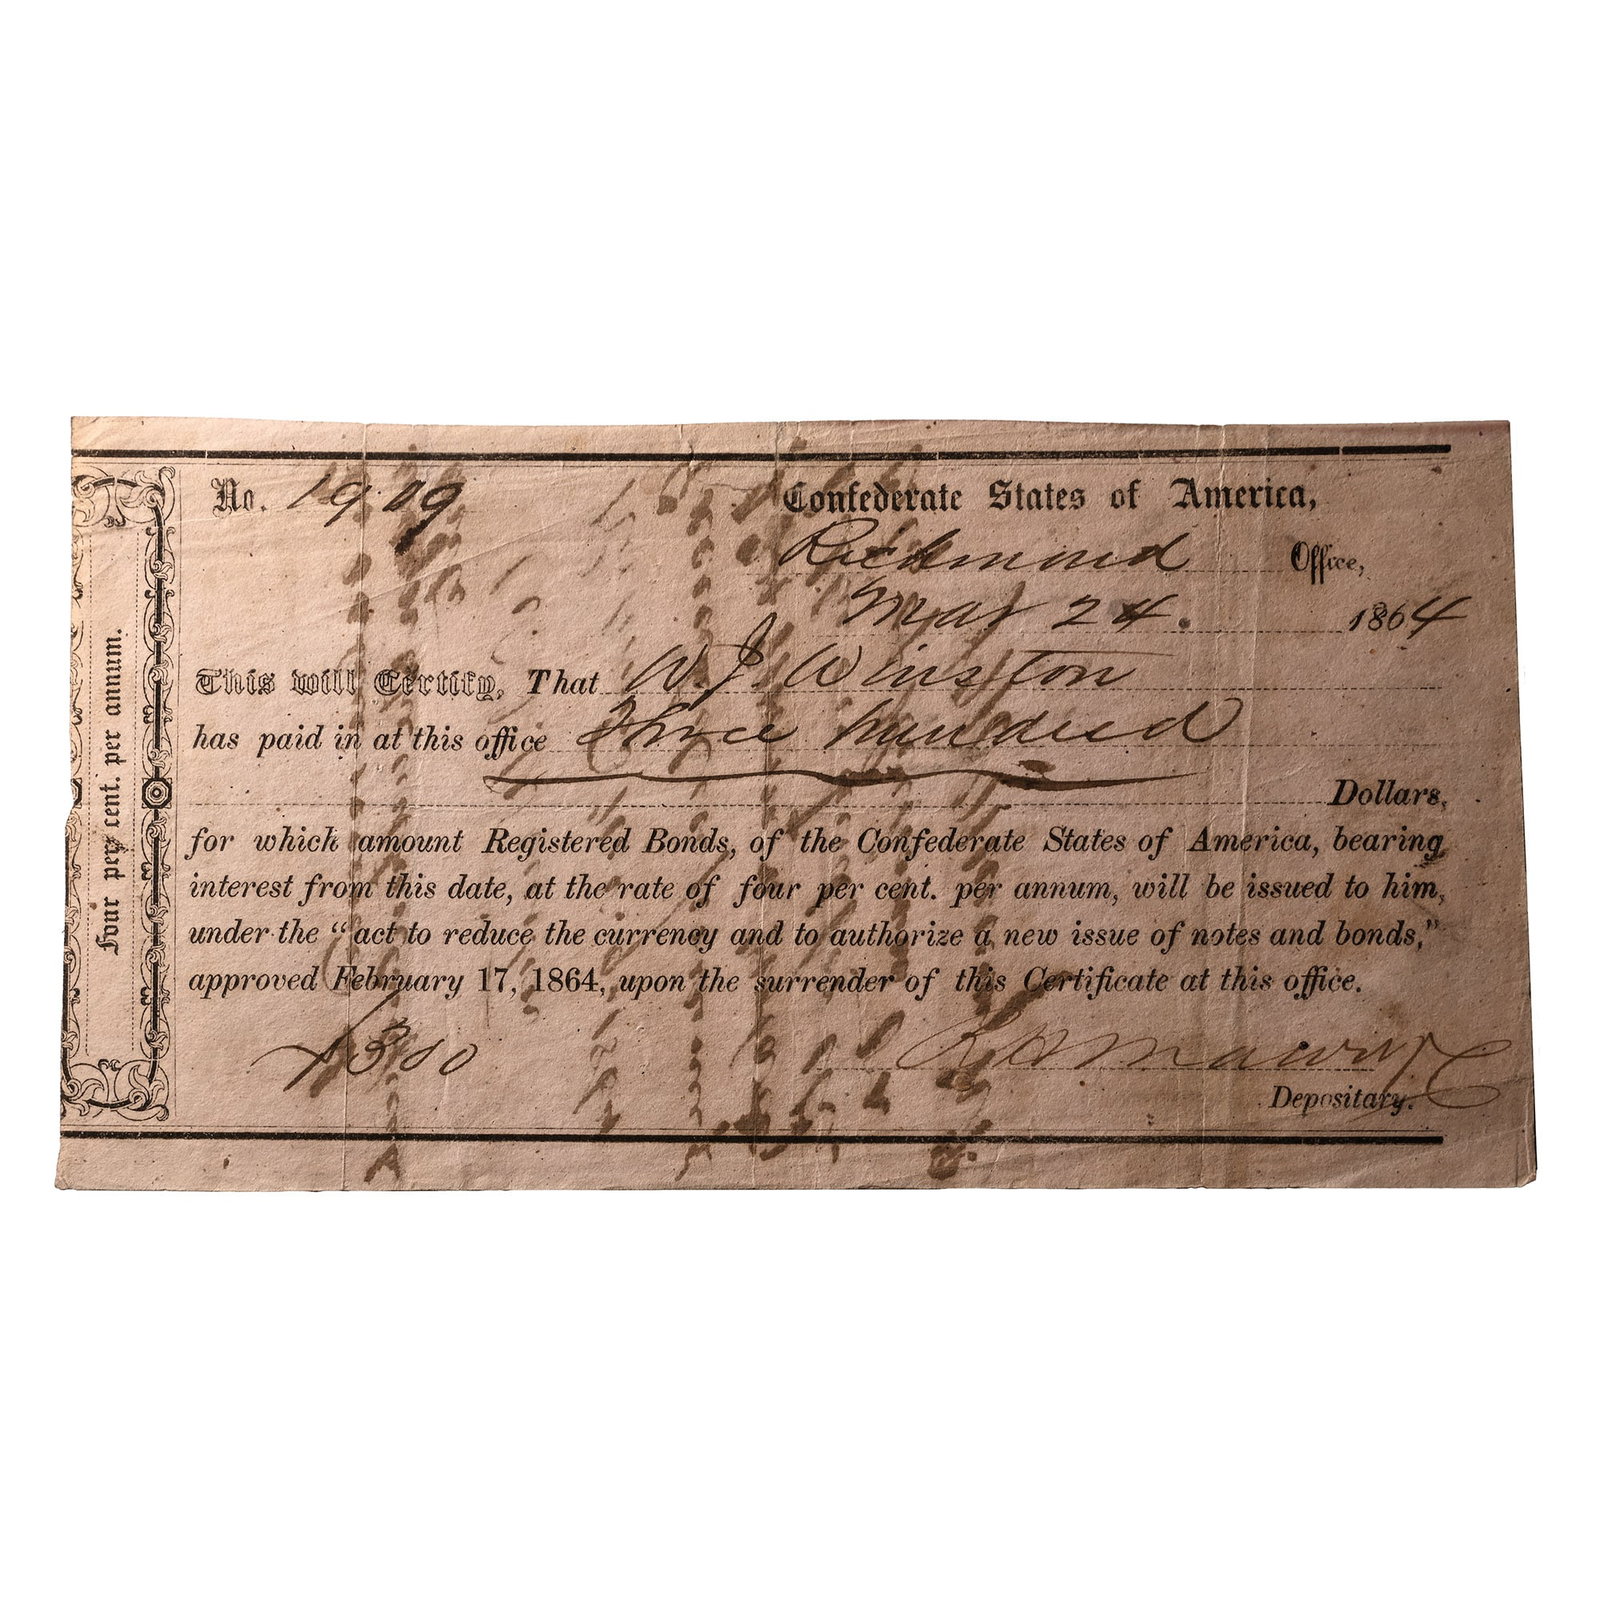 No. 1909
Confederate States of America,
Richmond Office,
Mar 24. 1864
This will Certify, That W. J. Winston
has paid in at this office Three hundred
Dollars,
for which amount Registered Bonds, of the Confederate States of America, bearing
interest from this date, at the rate of four per cent. per annum, will be issued to him,
under the "act to reduce the currency and to authorize a new issue of notes and bonds,"
approved February 17, 1864, upon the surrender of this Certificate at this office.
$300
R H Maury
Depositary.
Four per cent. per annum.